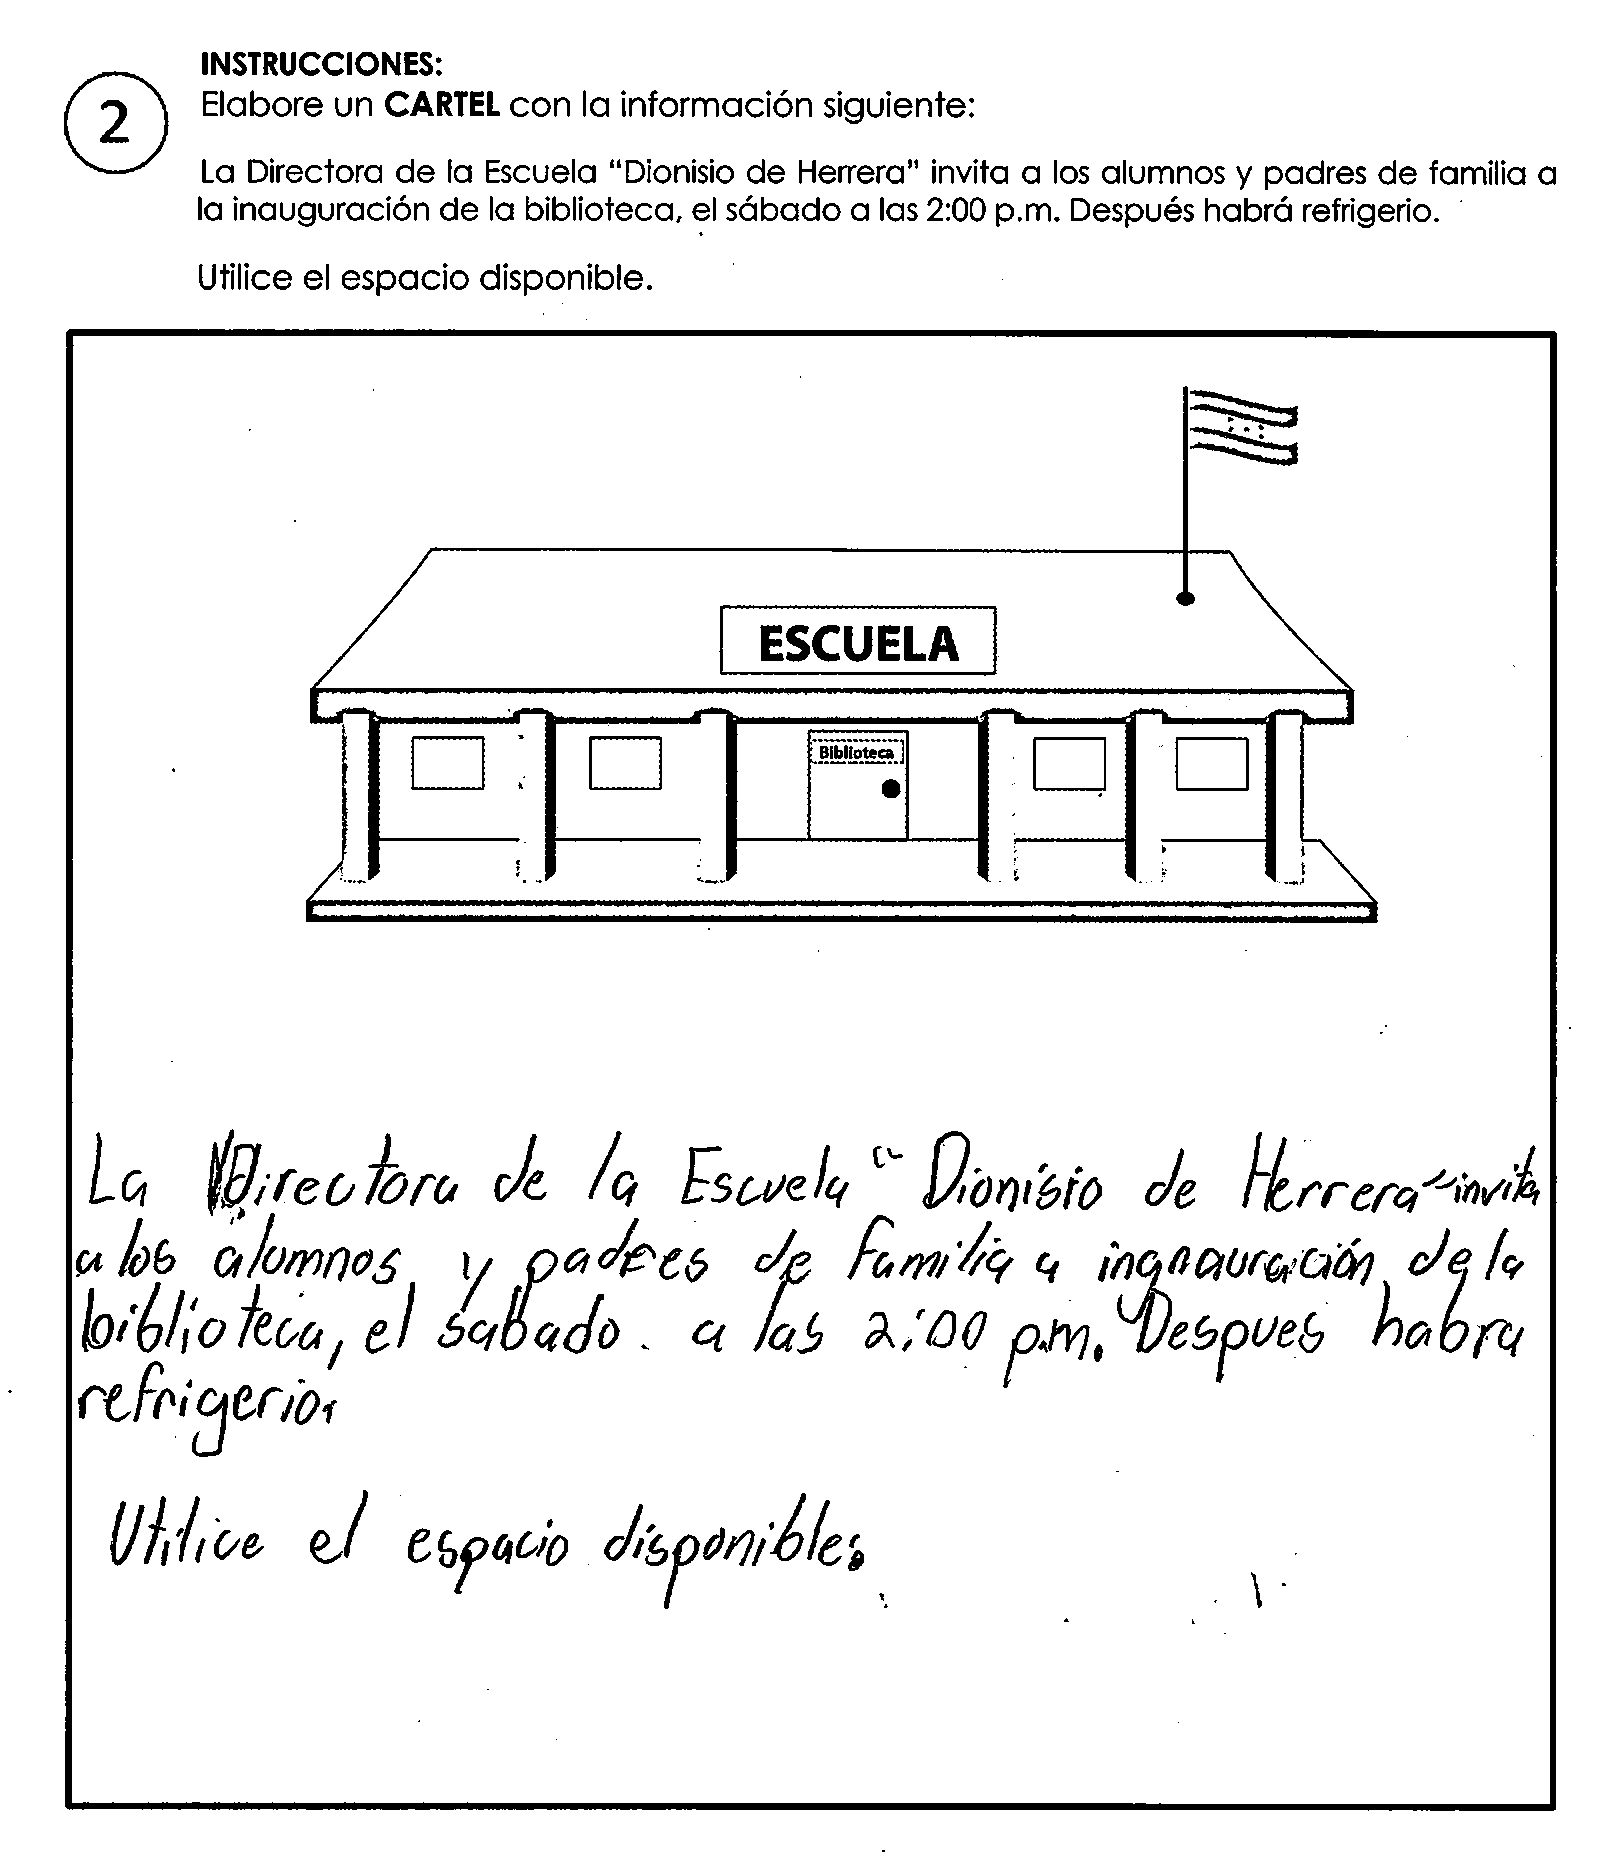 INSTRUCCIONES:
2
Elabore un CARTEL con la información siguiente:
La Directora de la Escuela “Dionisio de Herrera” invita a los alumnos y padres de familia a
la inauguración de la biblioteca, el sábado a las 2:00 p.m. Después habrá refrigerio.
Utilice el espacio disponible.
ESCUELA
Biblioteca
La Directora de la Escuela “Dionisio de Herrera” invita
a los alumnos y padres de familia a ingnauración de la
biblioteca, el sabado. a las 2:00 p.m. Despues habra
refrigerio.
Utilice el espacio disponible.